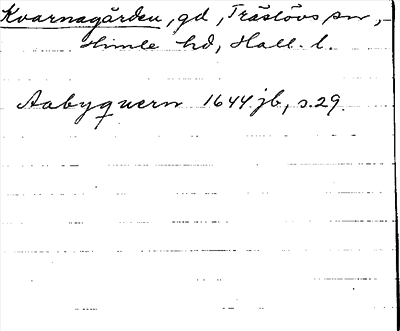 Kvarnagården, gd, Träslövs sn,
Himle hd, Hall. l.
Aabyquern 1644 jb, s. 29.